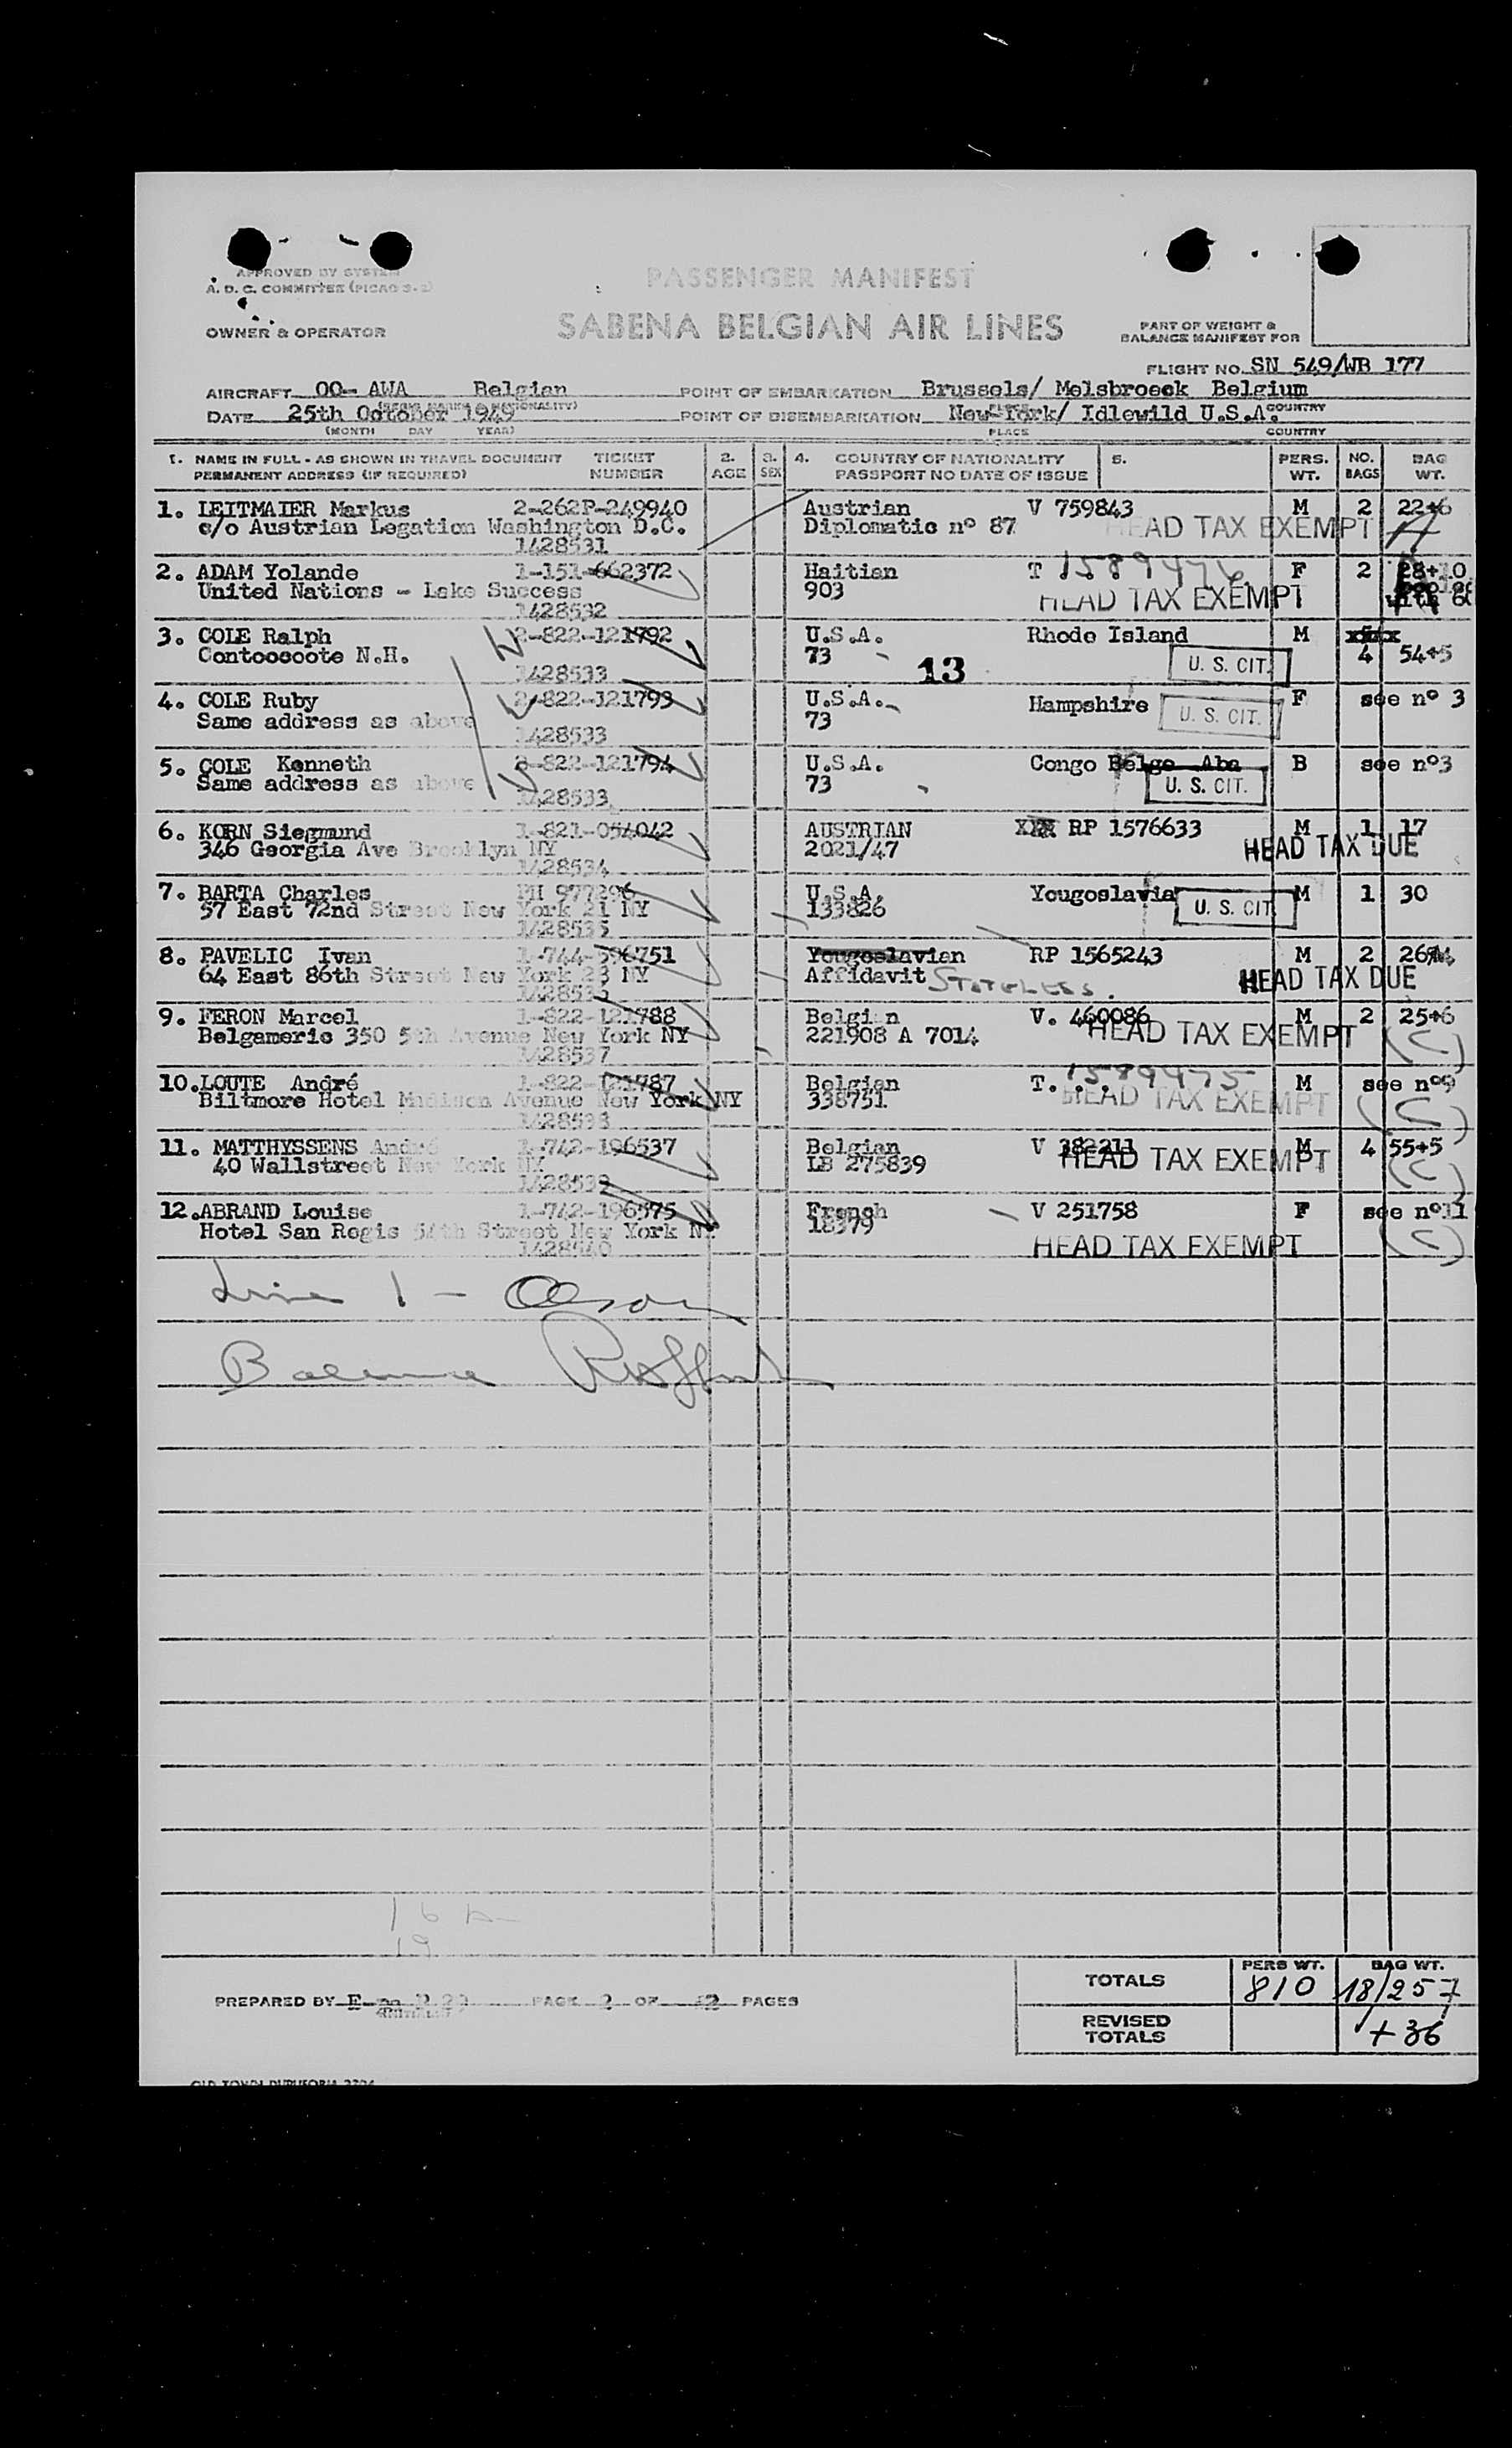 APPROVED BY SYSTEM
A. D. C. COMMITTEE (PICAO S-2)
PASSENGER MANIFEST
SABENA BELGIAN AIR LINES
OWNER & OPERATOR
PART OF WEIGHT &
BALANCE MANIFEST FOR
FLIGHT NO. SN 549/WB 177
AIRCRAFT OO- AWA Belgian POINT OF EMBARKATION Brussels/ Melsbroeck Belgium
DATE 25th October 1949 POINT OF DISEMBARKATION New-York/ Idlewild U.S.A.
(MONTH DAY YEAR) PLACE COUNTRY
1. NAME IN FULL - AS SHOWN IN TRAVEL DOCUMENT TICKET 2. 3. 4. COUNTRY OF NATIONALITY 5. PERS. NO. BAG
PERMANENT ADDRESS (IF REQUIRED) NUMBER AGE SEX PASSPORT NO DATE OF ISSUE WT. BAGS WT.
1. LEITMAIER Markus 2-262P-249940 Austrian V 759843 M 2 22+6
c/o Austrian Legation Washington D.C. Diplomatic nº 87 HEAD TAX EXEMPT
1428531
2. ADAM Yolande 1-151-662372 Haitian T 1589476 F 2 28+10
United Nations - Lake Success 903 HEAD TAX EXEMPT
1428532
3. COLE Ralph 2-822-121792 U.S.A. Rhode Island M
Contoocoote N.H. 73 13 U. S. CIT. 4 54+5
1428533
4. COLE Ruby 2-822-121793 U.S.A. Hampshire F see nº 3
Same address as above 73 U. S. CIT.
1428533
5. COLE Kenneth 3-822-121794 U.S.A. Congo Belge Aba B see nº3
Same address as above 73 U. S. CIT.
1428533
6. KORN Siegmund 1-821-054042 AUSTRIAN RP 1576633 M 1 17
346 Georgia Ave Brooklyn NY 2021/47 HEAD TAX DUE
1428534
7. BARTA Charles PH 977296 U.S.A. Yougoslavia M 1 30
57 East 72nd Street New York 21 NY 133826 U. S. CIT
1428535
8. PAVELIC Ivan 1-744-596751 Yougoslavian RP 1565243 M 2
64 East 86th Street New York 28 NY Affidavit STATELESS. HEAD TAX DUE
9. FERON Marcel 1-822-121788 Belgian V. 460086 M 2 25+6
Belgameric 350 5th Avenue New York NY 221908 A 7014 HEAD TAX EXEMPT (C)
1428537
10. LOUTE André 1-822-121787 Belgian T. 1589475 M see nº9
Biltmore Hotel Madison Avenue New York NY 338751 HEAD TAX EXEMPT (C)
1428538
11. MATTHYSSENS André 1-742-196537 Belgian V 382211 M 4 55+5
40 Wallstreet New York NY LB 275839 HEAD TAX EXEMPT (C)
1428539
12. ABRAND Louise 1-742-196575 French V 251758 F see nº11
Hotel San Regis 54th Street New York NY 18379 HEAD TAX EXEMPT (C)
1428540
Line 1 - Olson
Balance
16
19
TOTALS PERS WT. 810 BAG WT. 18/257
PREPARED BY PAGE 2 OF 2 PAGES
REVISED TOTALS + 36